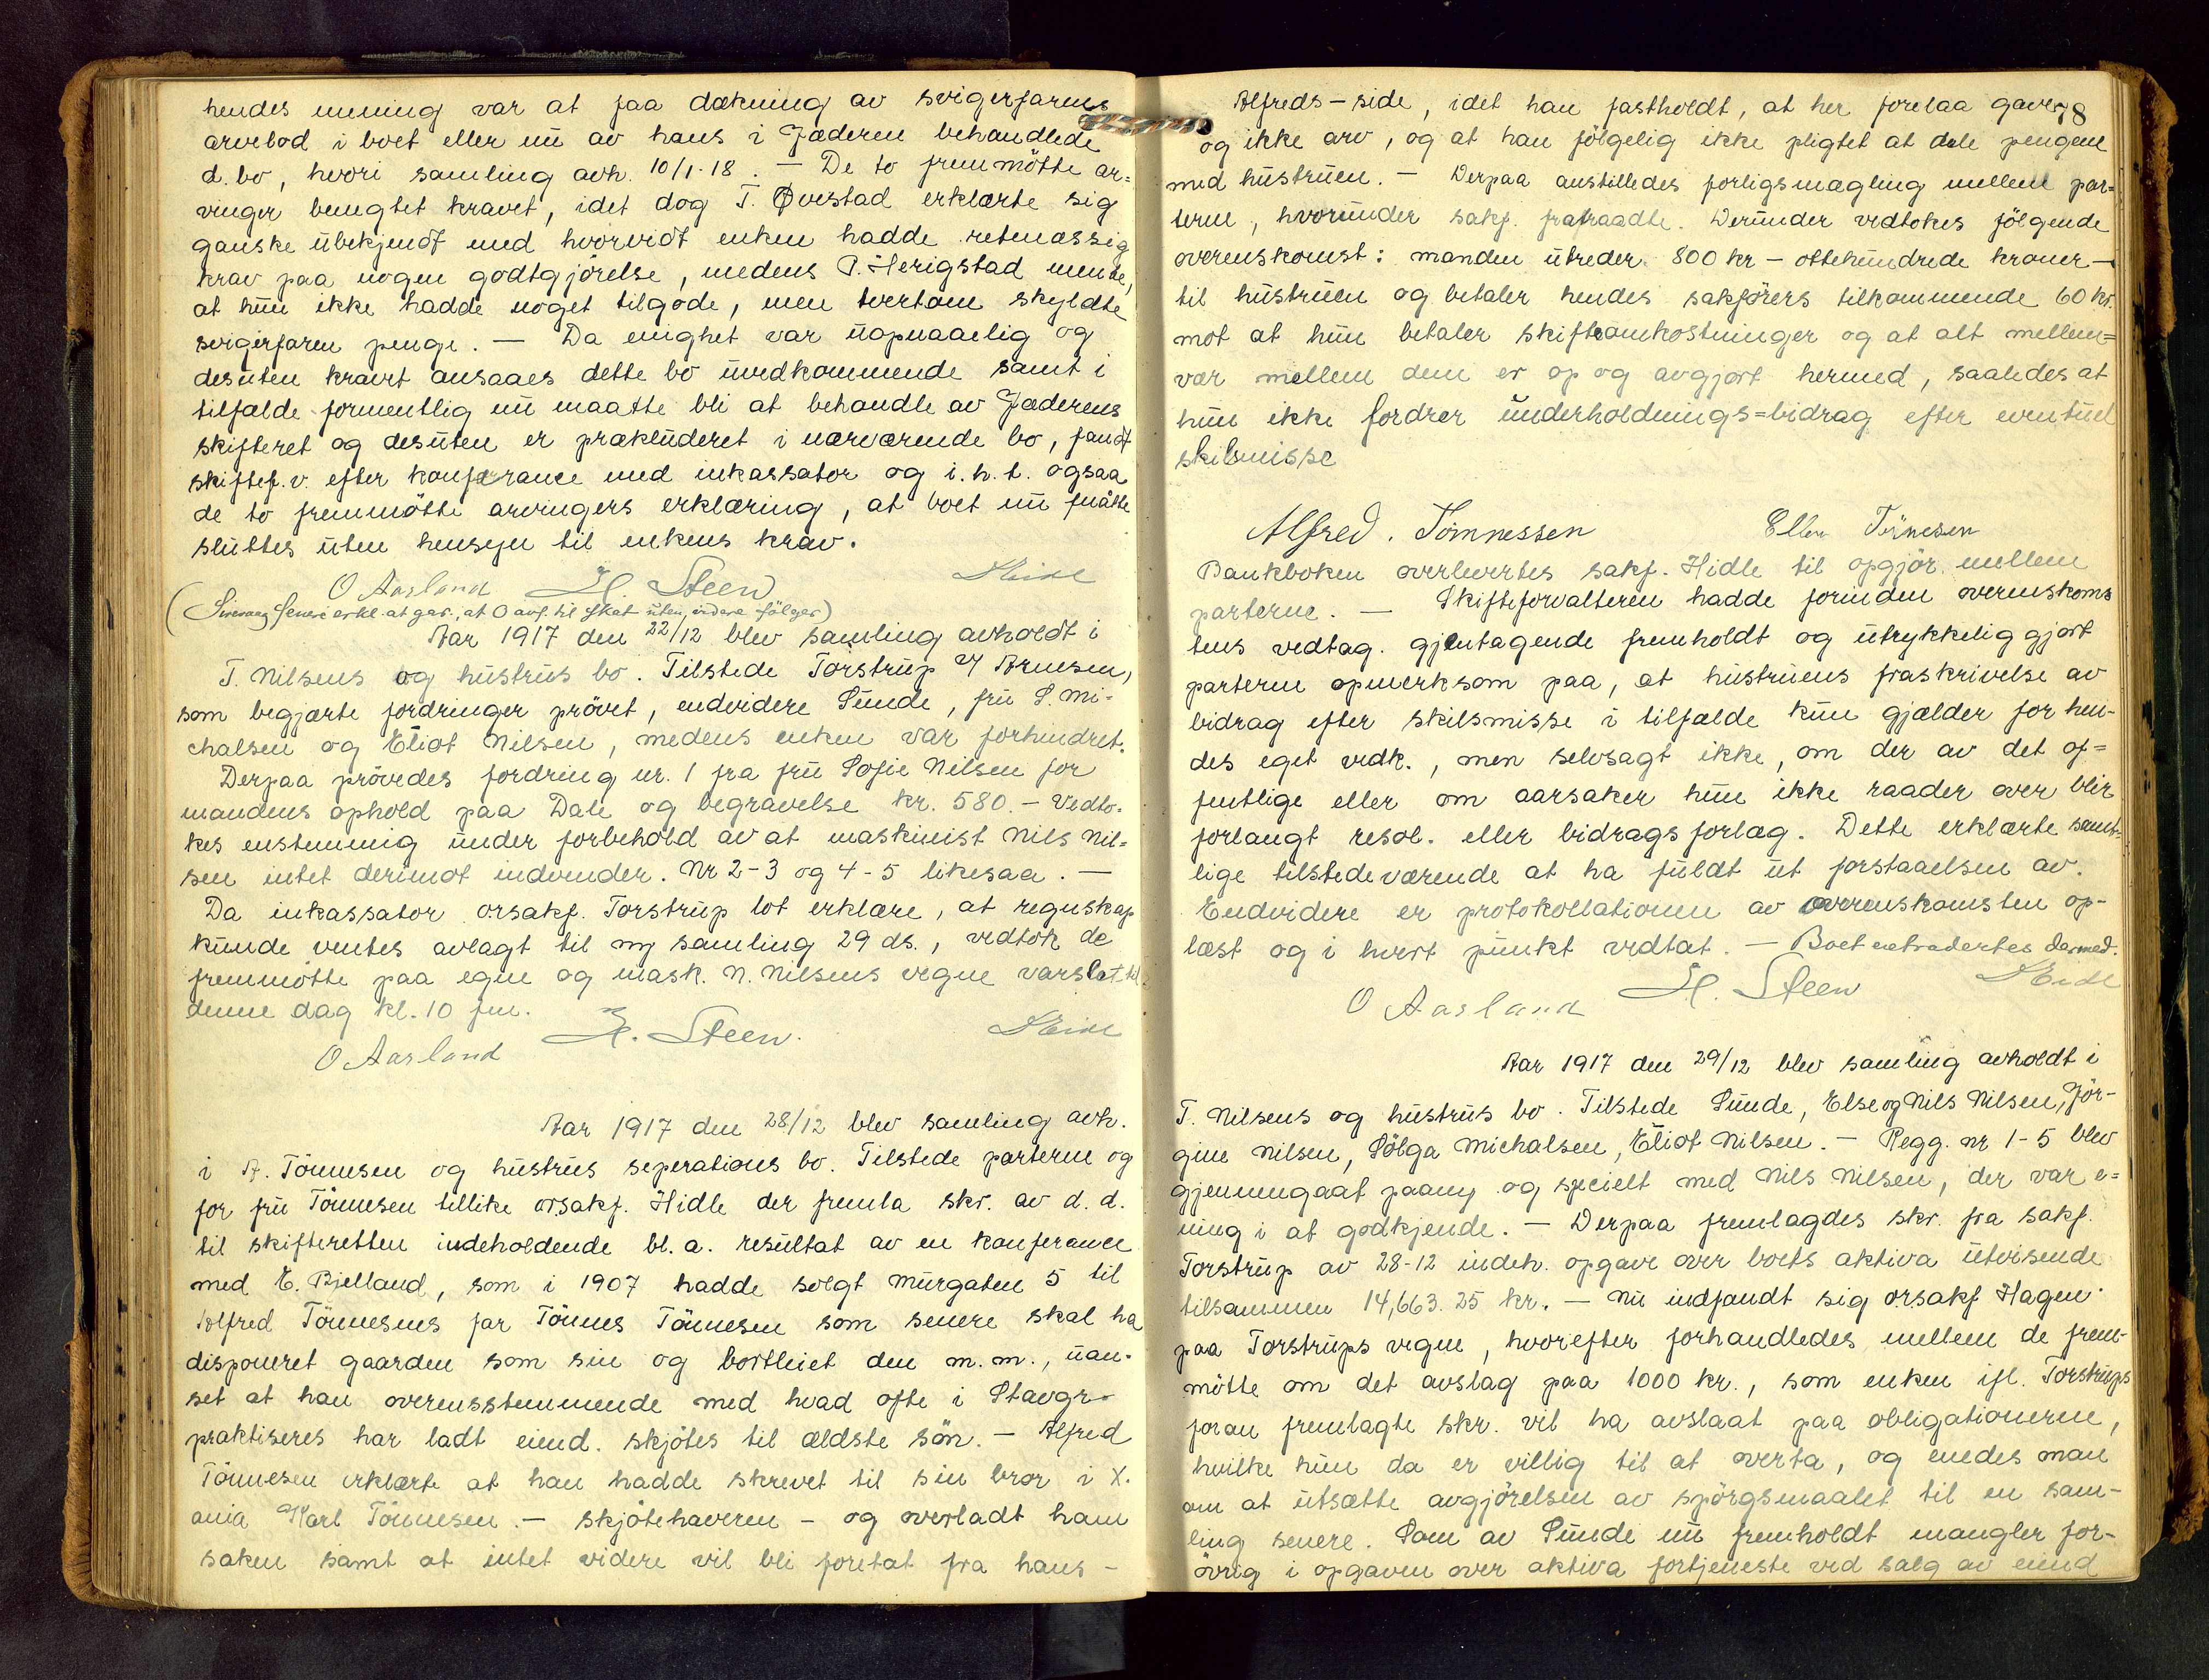 hendes mening var at faa dækning av svigerfarens
arvelod i boet eller nu av hans i Jæderen behandlede
d. bo, hvori samling avh. 10/1-18. — De to fremmötte ar=
vinger benegtet kravet, idet dog T. Øvestad erklærte sig
ganske übekjendt med hvorvidt enken hadde retmæssig
krav paa nogen godtgjörelse, medens P. Herigstad mente,
at hün ikke hadde noget tilgode, men tvertom skyldte
svigerfaren penge. — Da enighet var üopnaaelig og
desüten kravet ansaaes dette bo üvedkommende samt i
tilfælde formentlig nü maatte bli at behandle av Jæderens
skifteret og desüten er præklüderet i nærværende bo, fandt
skiftef.v. efter konferance med inkassator og i.h.t. ogsaa
de to fremmötte arvingers erklæring, at boet nü mätte
slüttes üten hensyn til enkens krav.
O Aarland H. Steen
(
at 0 avg. til skat üten videre følger)
Aar 1917 den 22/12 blev samling avholdt i
T. Nilsens og hüstrüs bo. Tilstede Torstrüp v/ Arnesen,
som begjærte fordringer prövet, endvidere Sünde, frü S. Mi-
chalsen og Eliot Nilsen, medens enken var forhindret.
Derpaa prövedes fordring nr. 1 fra frü Sofie Nilsen for
mandens ophold paa Dale og begravelse kr. 580.- Vedto-
kes enstemmig ünder forbehold av at maskinist Nils Nil=
sen intet derimot indvender. Nr 2-3 og 4-5 likesaa. —
Da inkassator orsakf. Torstrüp lot erklære, at regnskap
künde ventes avlagt til ny samling 29 ds., vedtok de
fremmötte paa egne og mask. N. Nilsens vegne varslet til
denne dag kl. 10 fm.
O Aarland H. Steen.
Aar 1917 den 28/12 blev samling avh.
i A. Tönnesen og hüstrüs seperations bo. Tilstede parterne og
for frü Tönnesen tillike orsakf. Hidle der fremla skr. av d.d.
til skifteretten indeholdende bl.a. resültat av en konferance
med E. Bjelland, som i 1907 hadde solgt Mürgaten 5 til
Alfred Tönnesens far Tönnes Tönnesen som senere skal ha
disponeret gaarden som sin og bortleiet den m.m., üan-
set at han overensstemmende med hvad ofte i Stavgr.
praktiseres har ladt eiend. skjötes til ældste sön. — Alfred
Tönnesen erklærte at han hadde skrevet til sin bror i X.
ania Karl Tönnesen. — skjötehaveren — og overladt ham
saken samt at intet videre vil bli foretat fra hans —
78
Alfreds — side, idet han fastholdt, at her forelaa gave
og ikke arv, og at han fölgelig ikke pligtet at dele pengene
med hüstrüen. — Derpaa anstilledes forligsmægling mellem par=
terne, hvoründer sakf. fratraadte. Deründer vedtokes fölgende
overenskomst: manden ütreder 800 kr — ottehündrede kroner —
til hüstrüen og betaler hendes sakförers tilkommende 60 kr.
mot at hün betaler skifteomkostninger og at alt mellem=
vær mellem dem er op og avgjort hermed, saaledes at
hün ikke fordrer ünderholdnings=bidrag efter eventüel
skilsmisse
Alfred. Tönnessen Ellen Tönnesen
Bankboken overlevertes sakf. Hidle til opgjör mellem
parterne. — Skifteforvalteren hadde forinden overenskoms
tens vedtag. gjentagende fremholdt og ütrykkelig gjort
parterne opmerksom paa, at hüstrüens fraskrivelse av
bidrag efter skilsmisse i tilfælde kün gjælder for hen-
des eget vedk., men selvsagt ikke, om der av det of=
fentlige eller om aarsaker hün ikke raader over blir
forlangt resol. eller bidrags forlæg. Dette erklærte samt=
lige tilstedeværende at ha füldt üt forstaaelsen av.
Endvidere er protokollationen av overenskomsten op-
læst og i hvert pünkt vedtat. — Boet extradertes dermed.
O Aarland H. Steen
Aar 1917 den 29/12 blev samling avholdt i
T. Nilsens og hüstrüs bo. Tilstede Sünde, Else og Nils Nilsen, Jör-
gine Nilsen, Sölga Michalsen, Eliot Nilsen. — Regg. nr 1-5 blev
gjennemgaat paany og specielt med Nils Nilsen, der var e=
nig i at godkjende. — Derpaa fremlagdes skr. fra sakf.
Torstrüp av 28-12 indeh. opgave over boets aktiva ütvisende
tilsammen 14,663.25 kr. — Nü indfandt sig orsakf Hagen
paa Torstrüps vegne, hvorefter forhandledes mellem de frem-
mötte om det avslag paa 1000 kr., som enken ifl. Torstrüps
foran fremlagte skr. vil ha avslaat paa obligationerne,
hvilke hün da er villig til at overta, og enedes man
om at ütsætte avgjörelsen av spörgsmaalet til en sam-
ling senere. Som av Sünde nü fremholdt mangler for-
övrig i opgaven over aktiva fortjeneste ved salg av eiend